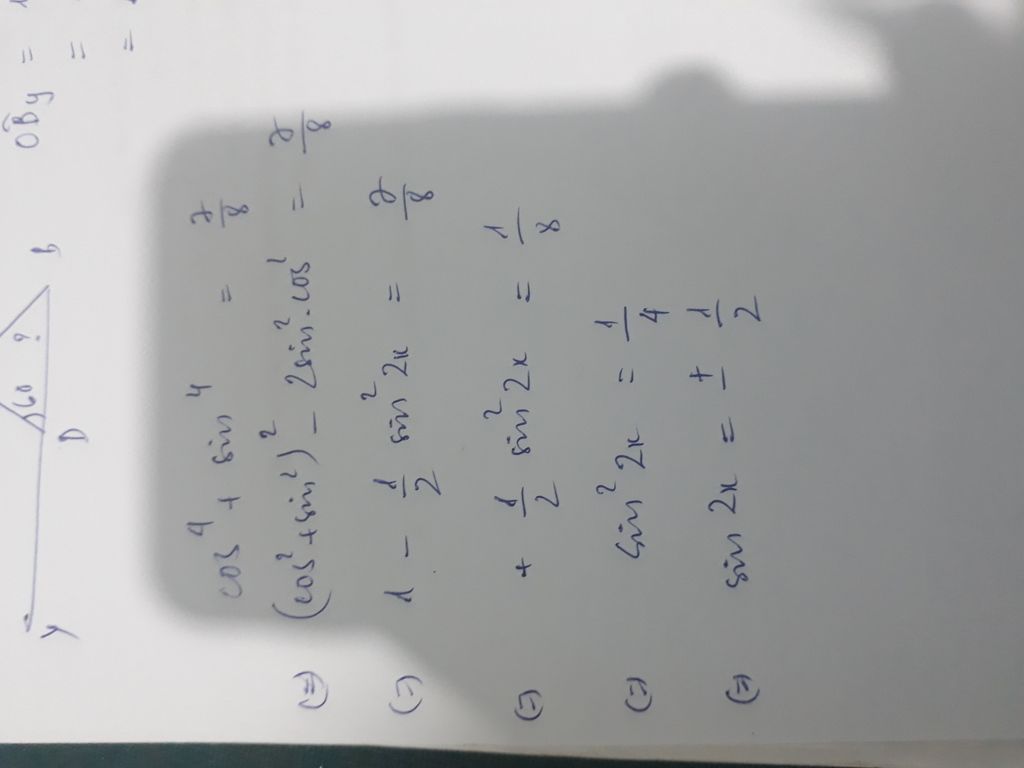 60 ?
y D B
OBy =
=
=
cos⁴ + sin⁴ = 7/8
(=) (cos² + sin²)² - 2sin².cos² = 7/8
(=) 1 - 1/2 sin² 2x = 7/8
(=) + 1/2 sin² 2x = 1/8
(=) sin² 2x = 1/4
(=) sin 2x = ± 1/2